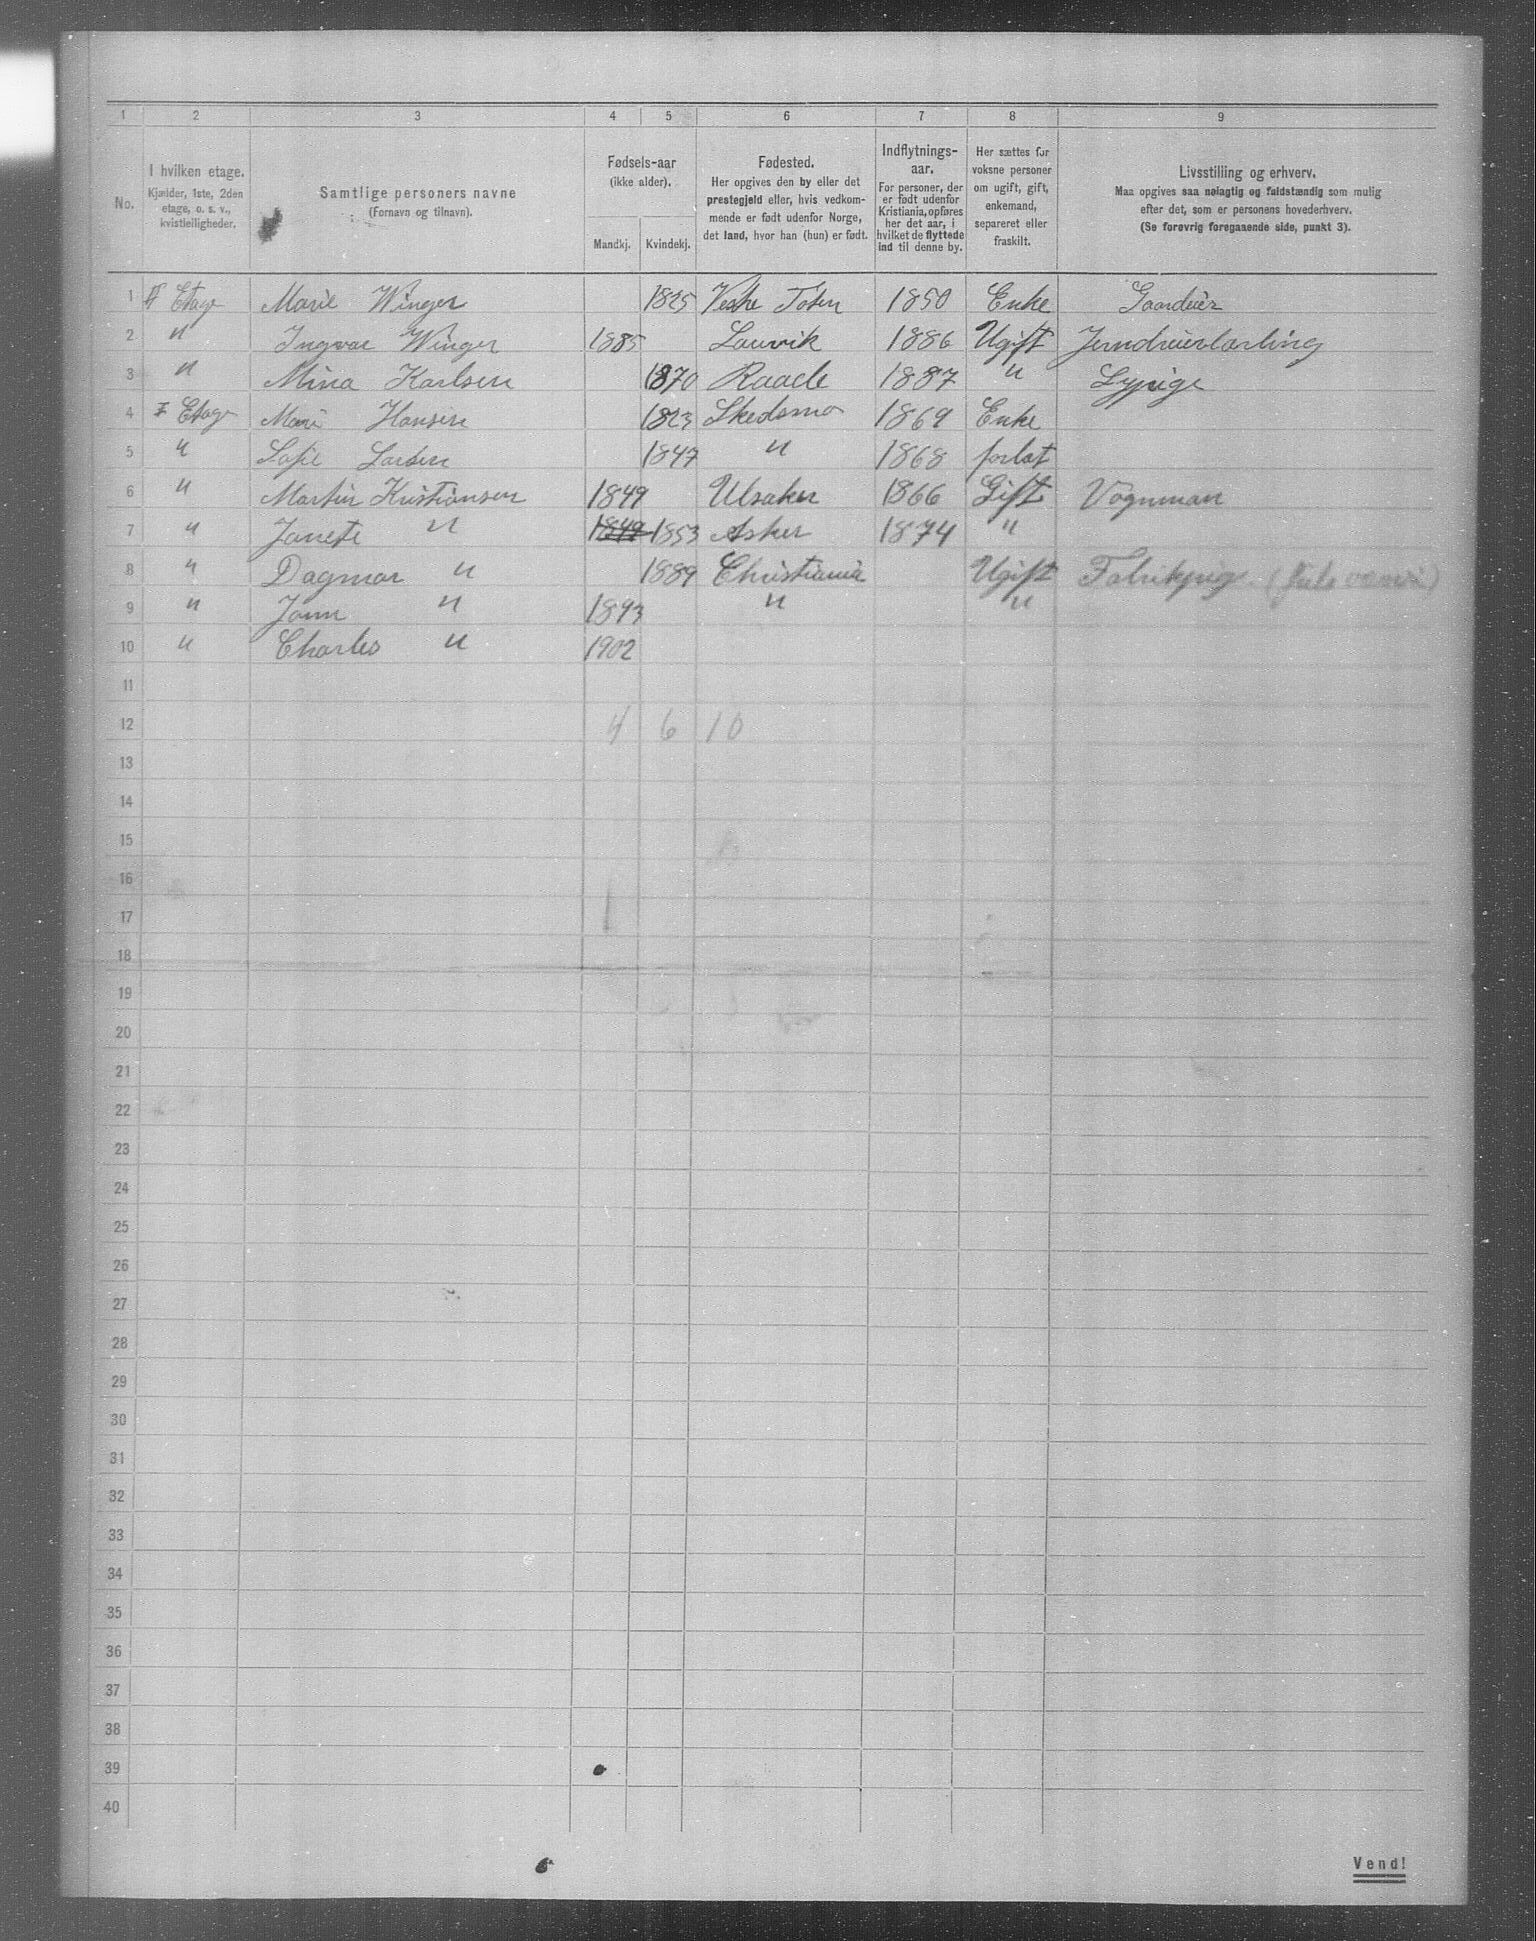 1 2 3 4 5 6 7 8 9
No.
I hvilken etage.
Kjælder, 1ste, 2den
etage, o. s. v.,
kvistleiligheder.
Samtlige personers navne
(Fornavn og tilnavn).
Fødsels-aar
(ikke alder).
Mandkj. Kvindekj.
Fødested.
Her opgives den by eller det
prestegjeld eller, hvis vedkom-
mende er født udenfor Norge,
det land, hvor han (hun) er født.
Indflytnings-
aar.
For personer, der
er født udenfor
Kristiania, opføres
her det aar, i
hvilket de flyttede
ind til denne by.
Her sættes for
voksne personer
om ugift, gift,
enkemand,
separeret eller
fraskilt.
Livsstilling og erhverv.
Maa opgives saa nøiagtig og fuldstændig som mulig
efter det, som er personens hovederhverv.
(Se forøvrig foregaaende side, punkt 3).
1 Etage Marie Winger 1825 Vestre Toten 1850 Enke Gaardeier
2 " Ingvar Winger 1885 Laurvik 1886 Ugift
3 " Mina Karlsen 1870 Raade 1887 "
4 I Etage Marie Hansen 1823 Skedsmo 1869 Enke
5 " Sofie Larsen 1847 " 1868 forlat
6 " Martin Kristiansen 1849 Ulsaker 1866 Gift Vognman
7 " Janete " 1849 1853 Asker 1874 "
8 " Dagmar " 1889 Christiania Ugift Fabrikpige
9 " " 1893 " "
10 " Charles " 1902
11
12 4 6 10
13
14
15
16
17
18
19
20
21
22
23
24
25
26
27
28
29
30
31
32
33
34
35
36
37
38
39
40
Vend!